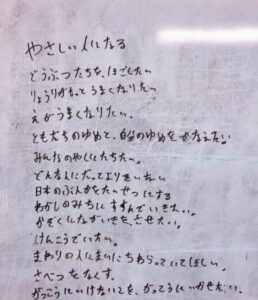 やさしい人になる
どうぶつたちを、ほごしたい
りょうりがもっとうまくなりたい
えがうまくなりたい。
ともだちのゆめと、自分のゆめをかなえたい。
みんなのやくにたちたい。
どんな人にだってよりそいたい
日本のぶんかをたいせつにする
わがしのみちにすすんでいきたい。
かぞくにながいきを、させたい。
けんこうでいたい。
まわりの人に
さべつをなくす。
がっこうにいけない子を、がっこうにいかせたい。